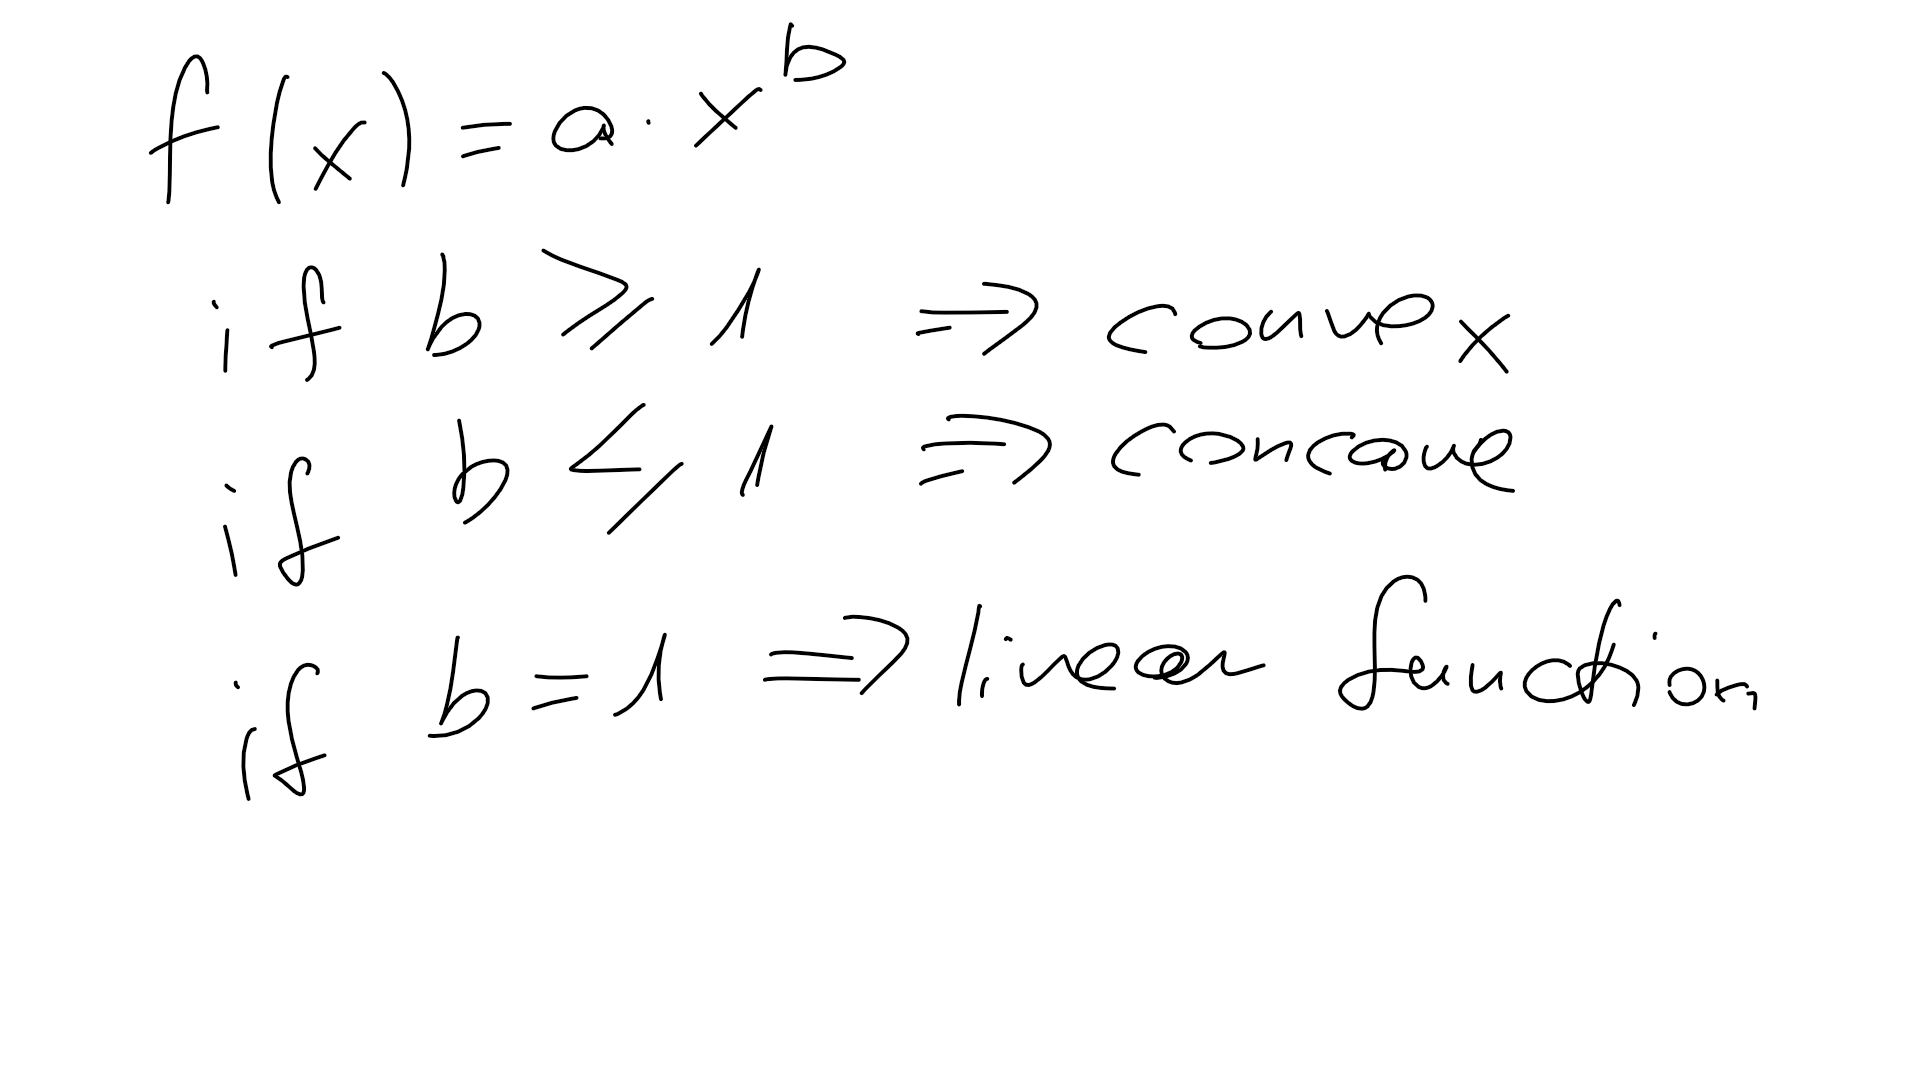 f(x) = a · x^b
if b ⩾ 1 ⇒ convex
if b ⩽ 1 ⇒ concave
if b = 1 ⇒ linear function